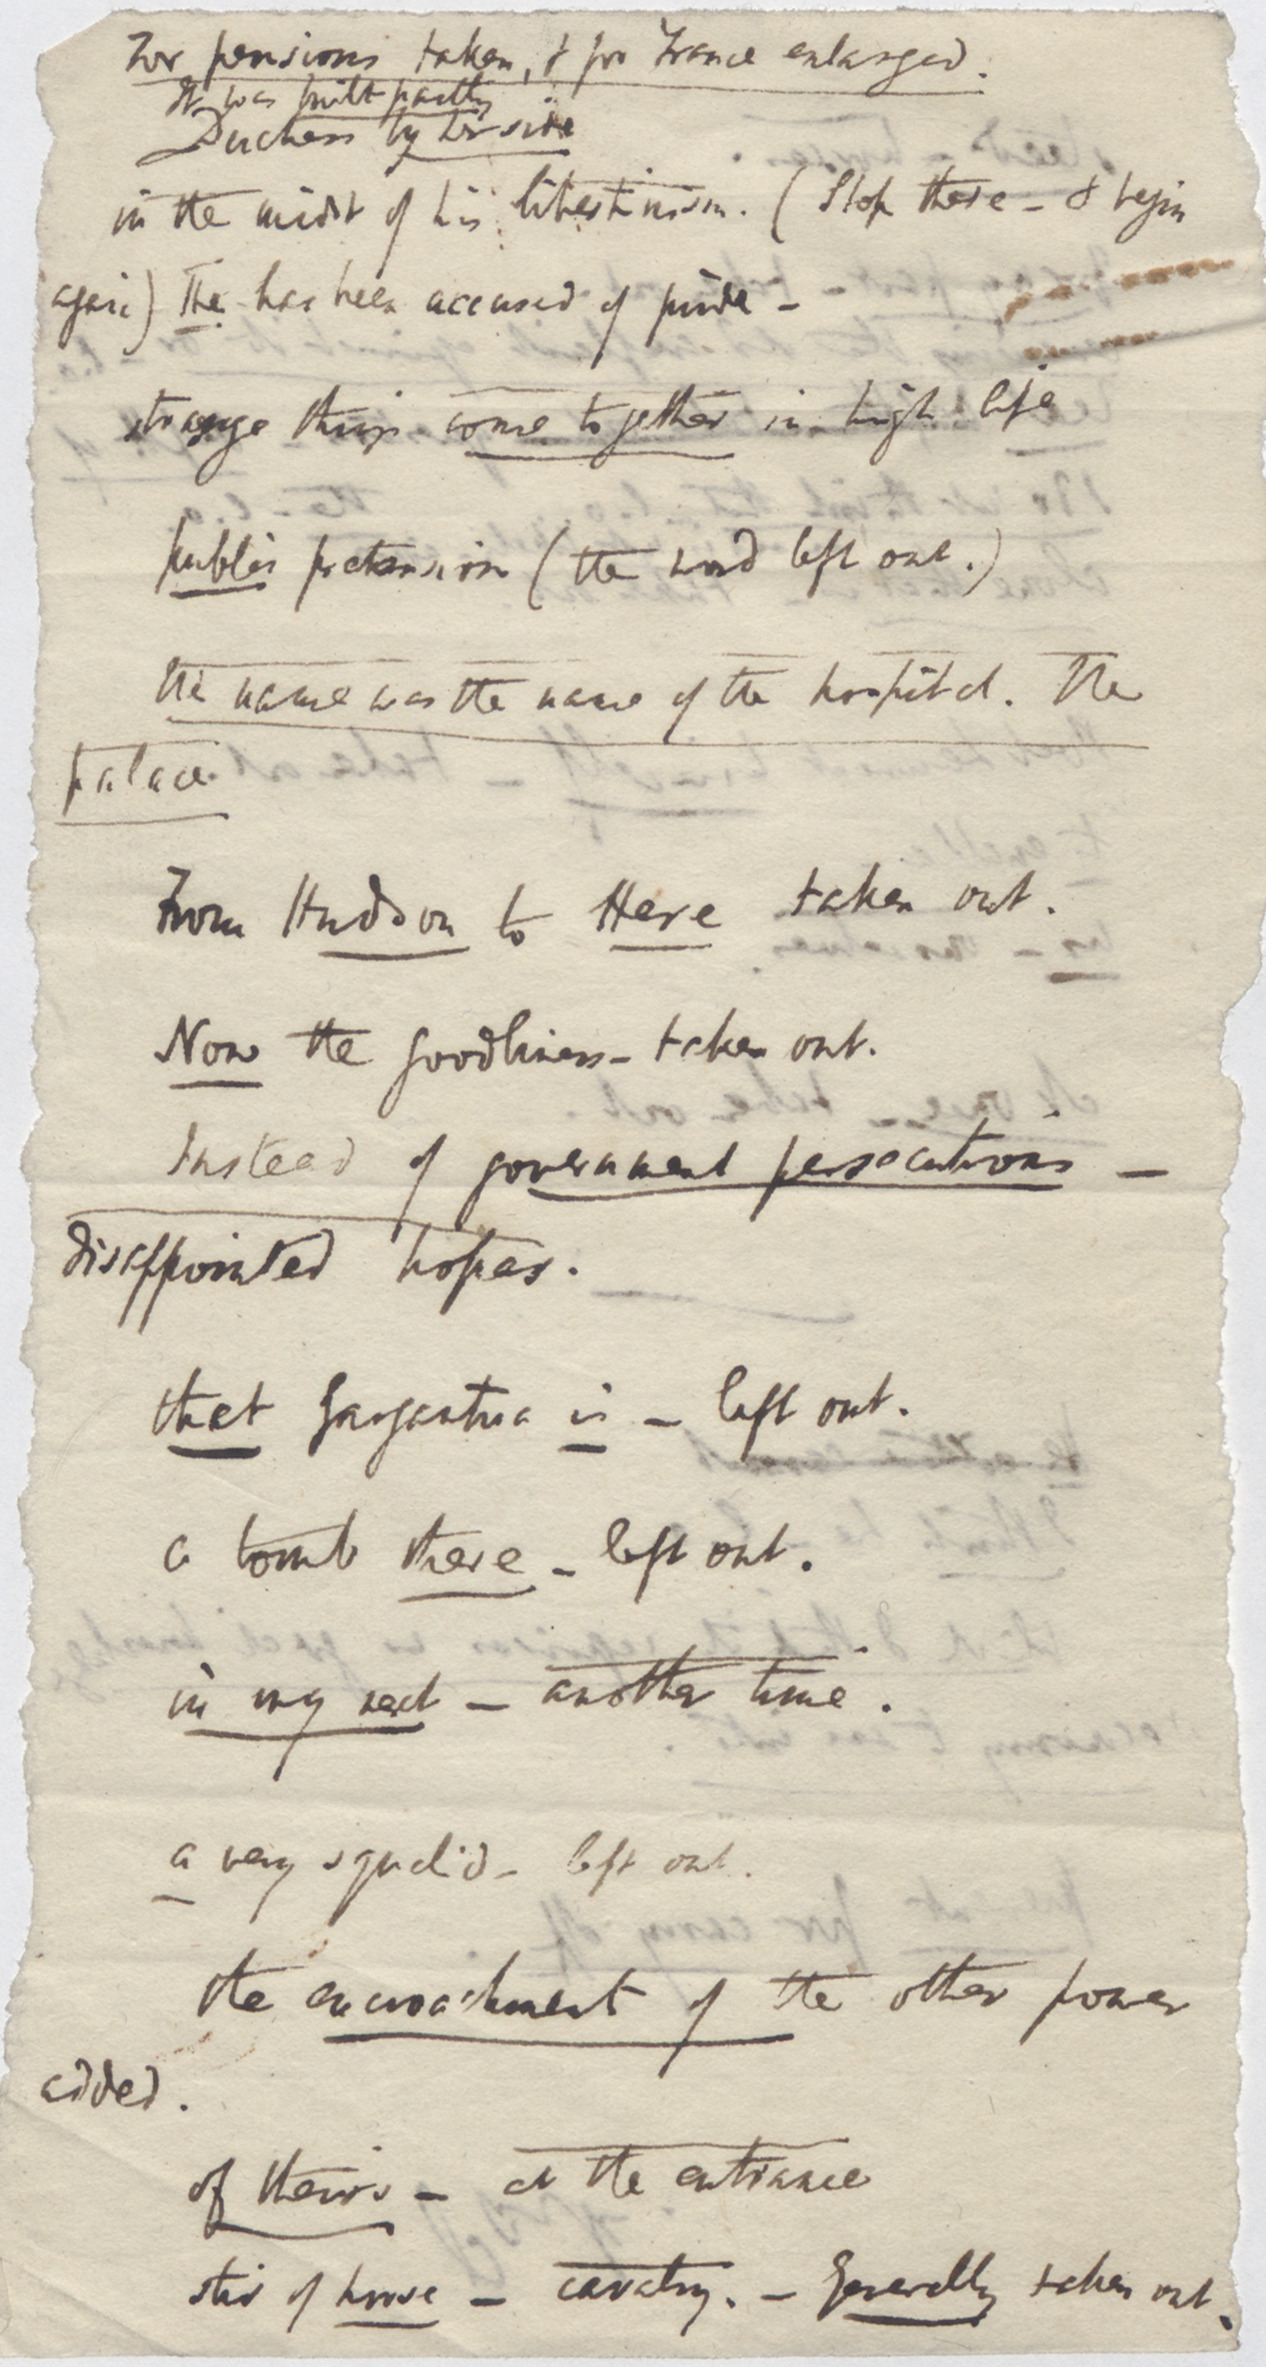 For pensions taken, & for France enlarged.
It was built partly
Duchess by her side
in the midst of his libertinism. (Stop there - & begin
again) He has been accused of pride -
strange things come together in high life
public pretension (the word left out.)
the name was the name of the hospital. The
palace
From Hudson to Here taken out.
Now the goodliness - taken out.
Instead of government persecutions -
disappointed hopes.
that Gargantua is - left out.
a tomb there - left out.
in my next - another time.
a very squalid - left out.
the encroachment of the other power
added.
of theirs - at the entrance
stir of horse - cavalry. - Generally taken out.